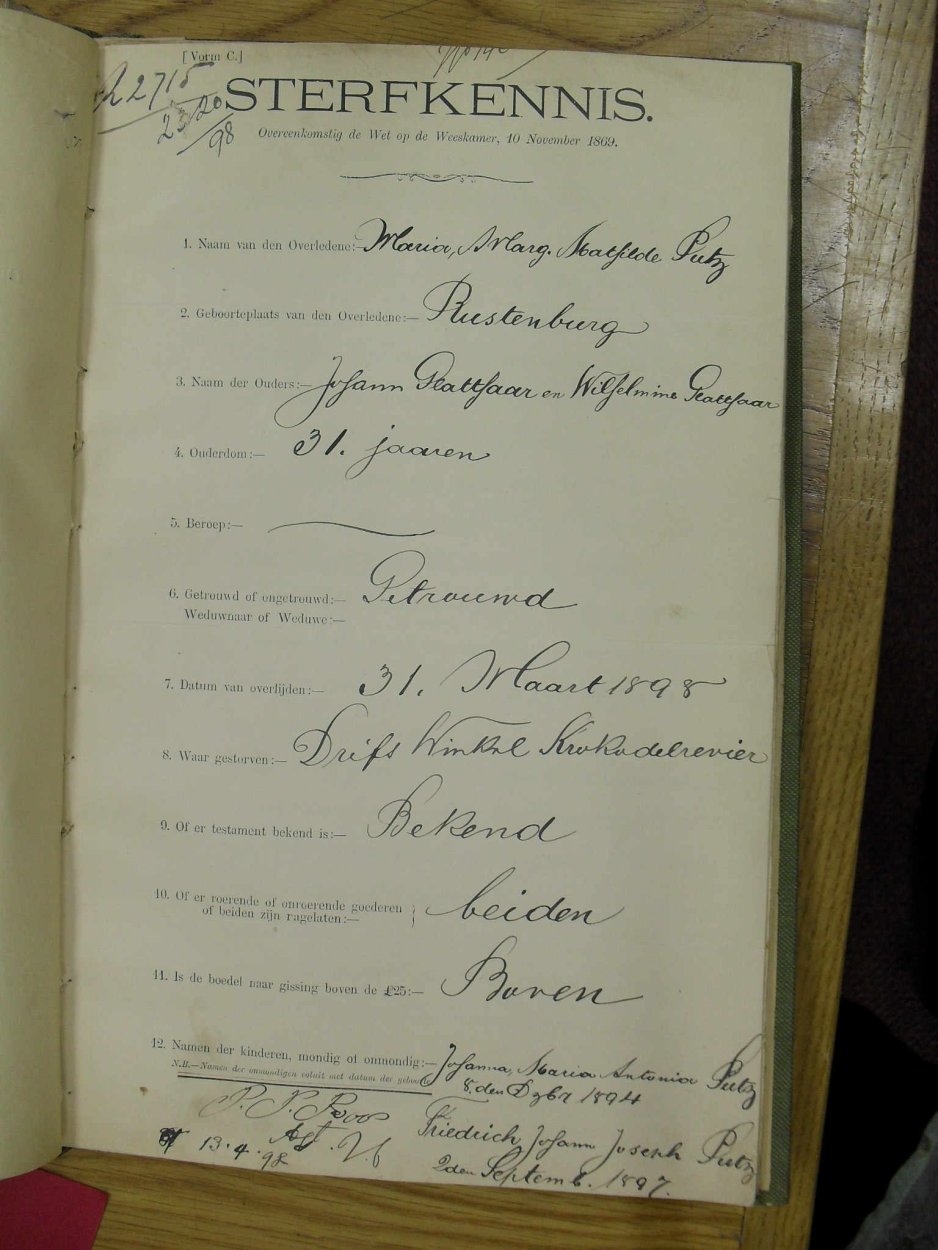 [Vorm C.]
2715
98
STERFKENNIS.
Overeenkomstig de Wet op de Weeskamer, 10 November 1869.
1. Naam van den Overledene:— Maria, Marg. Mathilde Putz
2. Geboorteplaats van den Overledene:— Rustenburg
3. Naam der Ouders:— Johann Glatthaar en Wilhelmine Glatthaar
4. Ouderdom:— 31. jaaren
5. Beroep:—
6. Getrouwd of ongetrouwd:— Getrouwd
Weduwnaar of Weduwe:—
7. Datum van overlijden:— 31. Maart 1898
8. Waar gestorven:— Drifs Winkel Krokodelrevier
9. Of er testament bekend is:— Bekend
10. Of er roerende of onroerende goederen
of beiden zijn nagelaten:— beiden
11. Is de boedel naar gissing boven de £25:— Boven
12. Namen der kinderen, mondig of onmondig:— Johanna, Maria Antonia Putz
N.B.—Namen der onmondigen voluit met datum der geboorte
8. den Dzbr 1894
Friedrich Johann Joseph Putz
2den Septemb. 1897.
13.4.98